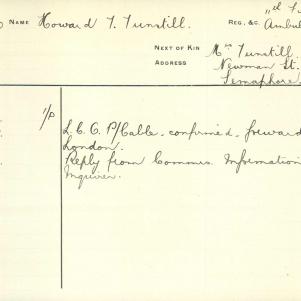 NAME Howard T. Tunstill. REG. &C. Ambul
NEXT OF KIN Mrs Tunstill
ADDRESS Newman St.
Semaphore.
L.C.O. P/Cable confirmed forward
London.
Reply from Commrs. Information
Inquirer.